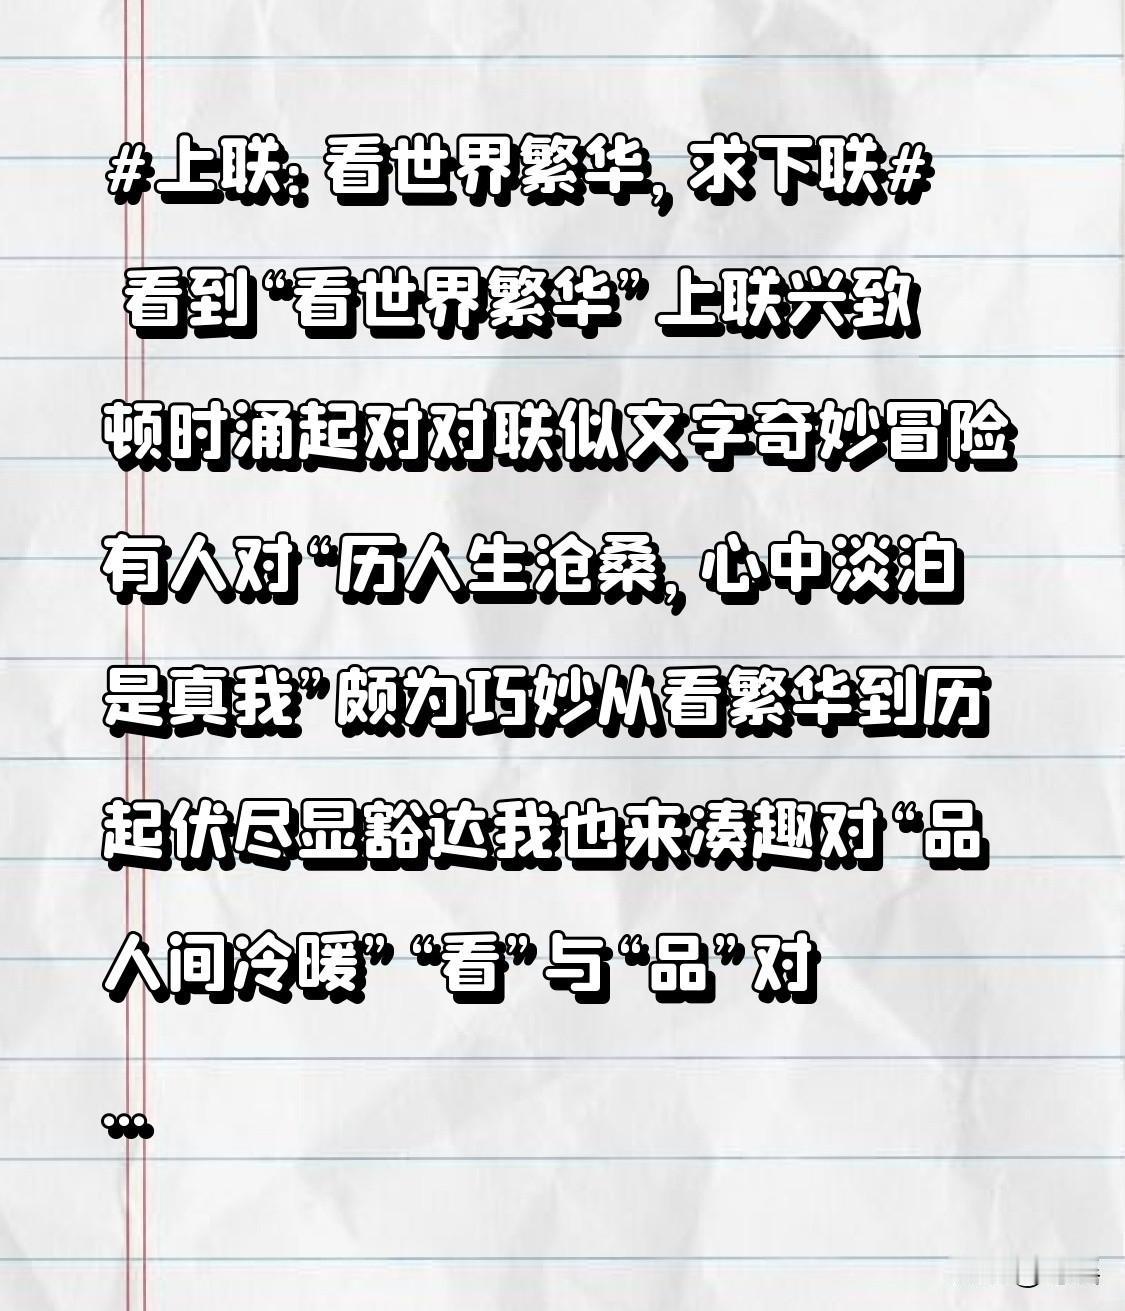 #上联：看世界繁华，求下联#
看到“看世界繁华”上联兴致
顿时涌起对对联似文字奇妙冒险
有人对“历人生沧桑，心中淡泊
是真我”颇为巧妙从看繁华到历
起伏尽显豁达我也来凑趣对“品
人间冷暖”“看”与“品”对
…